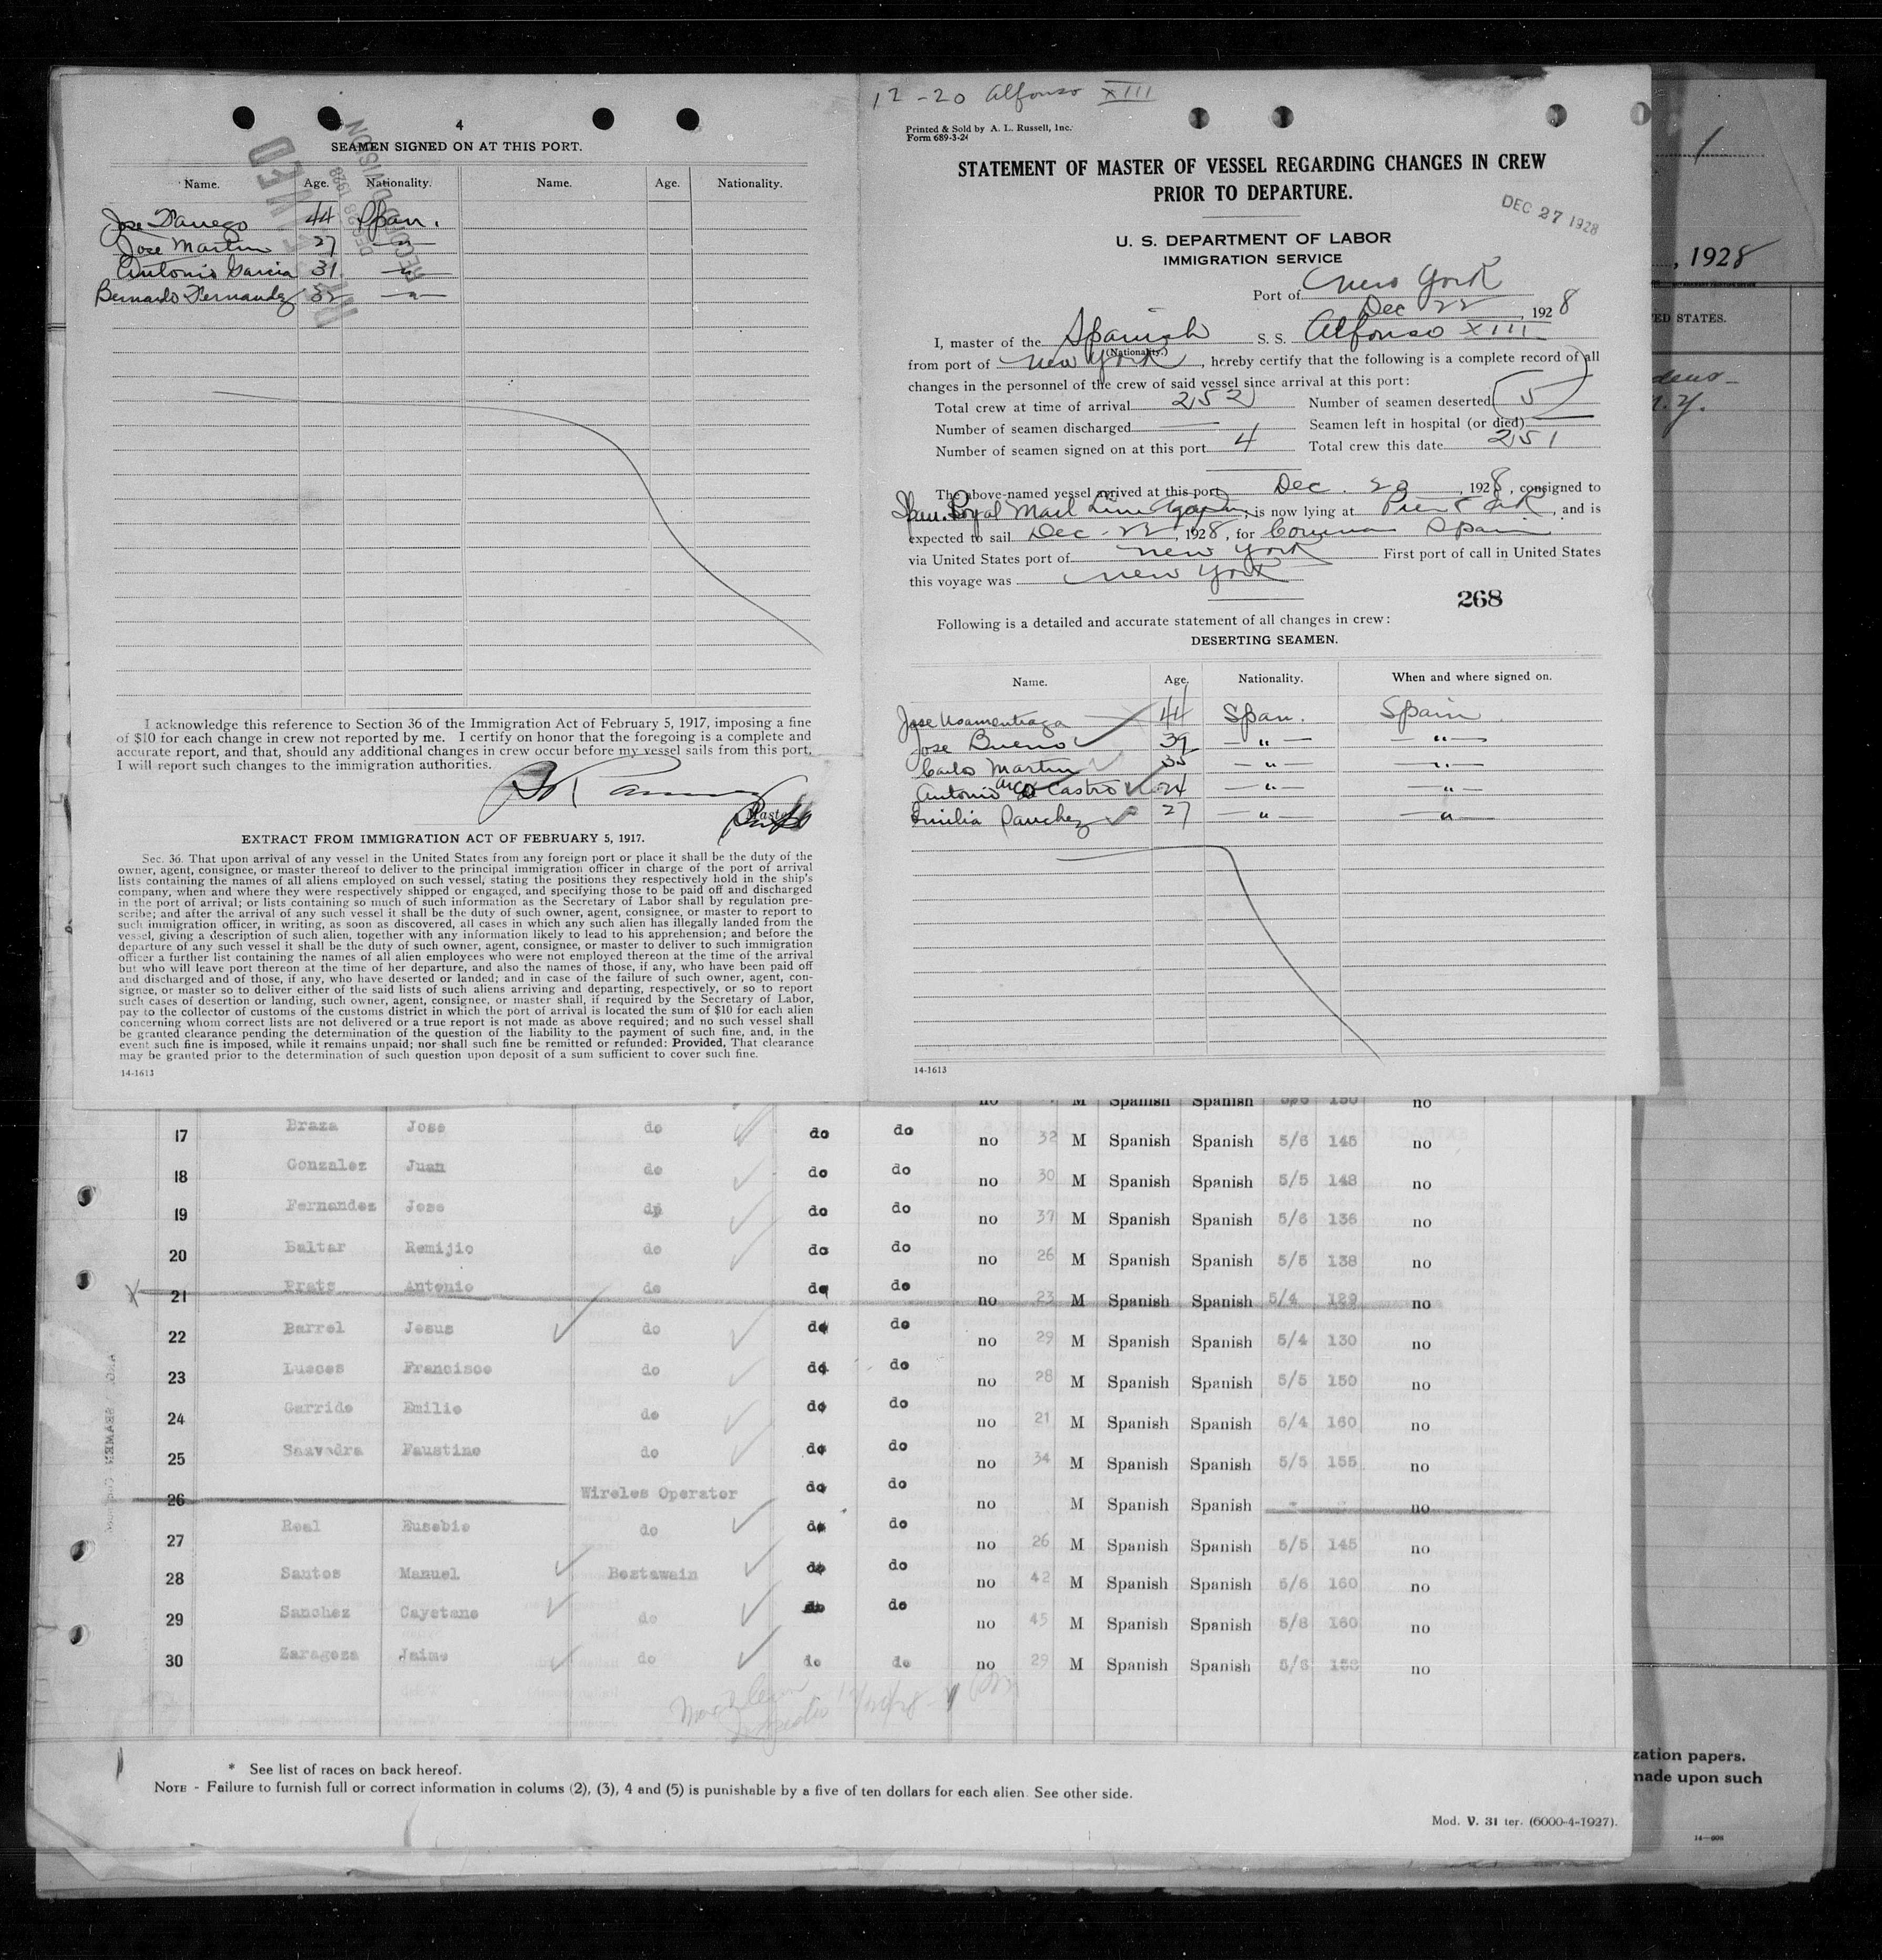 4
SEAMEN SIGNED ON AT THIS PORT.
Name. Age. Nationality. Name. Age. Nationality.
Jose 44 Span.
Jose Martin 27 — " —
Antonio Garcia 31 — " —
Bernardo Fernandez 32 — " —
RECORD DIVISION
DEC 28 1928
I acknowledge this reference to Section 36 of the Immigration Act of February 5, 1917, imposing a fine
of $10 for each change in crew not reported by me. I certify on honor that the foregoing is a complete and
accurate report, and that, should any additional changes in crew occur before my vessel sails from this port,
I will report such changes to the immigration authorities.
Master
EXTRACT FROM IMMIGRATION ACT OF FEBRUARY 5, 1917.
Sec. 36. That upon arrival of any vessel in the United States from any foreign port or place it shall be the duty of the
owner, agent, consignee, or master thereof to deliver to the principal immigration officer in charge of the port of arrival
lists containing the names of all aliens employed on such vessel, stating the positions they respectively hold in the ship's
company, when and where they were respectively shipped or engaged, and specifying those to be paid off and discharged
in the port of arrival; or lists containing so much of such information as the Secretary of Labor shall by regulation pre-
scribe; and after the arrival of any such vessel it shall be the duty of such owner, agent, consignee, or master to report to
such immigration officer, in writing, as soon as discovered, all cases in which any such alien has illegally landed from the
vessel, giving a description of such alien, together with any information likely to lead to his apprehension; and before the
departure of any such vessel it shall be the duty of such owner, agent, consignee, or master to deliver to such immigration
officer a further list containing the names of all alien employees who were not employed thereon at the time of the arrival
but who will leave port thereon at the time of her departure, and also the names of those, if any, who have been paid off
and discharged and of those, if any, who have deserted or landed; and in case of the failure of such owner, agent, con-
signee, or master so to deliver either of the said lists of such aliens arriving and departing, respectively, or so to report
such cases of desertion or landing, such owner, agent, consignee, or master shall, if required by the Secretary of Labor,
pay to the collector of customs of the customs district in which the port of arrival is located the sum of $10 for each alien
concerning whom correct lists are not delivered or a true report is not made as above required; and no such vessel shall
be granted clearance pending the determination of the question of the liability to the payment of such fine, and, in the
event such fine is imposed, while it remains unpaid; nor shall such fine be remitted or refunded: Provided, That clearance
may be granted prior to the determination of such question upon deposit of a sum sufficient to cover such fine.
14-1613
12-20 Alfonso XIII
Printed & Sold by A. L. Russell, Inc.
Form 689-3-24
STATEMENT OF MASTER OF VESSEL REGARDING CHANGES IN CREW
PRIOR TO DEPARTURE.
DEC 27 1928
U. S. DEPARTMENT OF LABOR
IMMIGRATION SERVICE
Port of New York
Dec 22, 1928
I, master of the Spanish S. S. Alfonso XIII
(Nationality.)
from port of New York, hereby certify that the following is a complete record of all
changes in the personnel of the crew of said vessel since arrival at this port:
Total crew at time of arrival 252 Number of seamen deserted 5
Number of seamen discharged — Seamen left in hospital (or died) —
Number of seamen signed on at this port 4 Total crew this date 251
The above-named vessel arrived at this port Dec. 20, 1928, consigned to
Span. Royal Mail Line Agency, is now lying at Pier 8 ER, and is
expected to sail Dec - 22, 1928, for Coruna Spain
via United States port of New York First port of call in United States
this voyage was New York
268
Following is a detailed and accurate statement of all changes in crew:
DESERTING SEAMEN.
Name. Age. Nationality. When and where signed on.
Jose Usamentiaga 44 Span. Spain
Jose Bueno 39 — " — — " —
Carlos Martin 35 — " — — " —
Antonio Castro 24 — " — — " —
Emilia Sanchez 27 — " — — " —
14-1613
1
, 1928
ED STATES.
no M Spanish Spanish 5/6 150 no
17 Braza Jose do do do no 32 M Spanish Spanish 5/6 145 no
18 Gonzalez Juan do do do no 30 M Spanish Spanish 5/5 148 no
19 Fernandez Jose do do do no 37 M Spanish Spanish 5/6 136 no
20 Baltar Remijio do do do no 26 M Spanish Spanish 5/5 138 no
21 Prats Antonio do do do no 23 M Spanish Spanish 5/4 129 no
22 Barrel Jesus do do do no 29 M Spanish Spanish 5/4 130 no
23 Lueces Francisco do do do no 28 M Spanish Spanish 5/5 150 no
24 Garrido Emilio do do do no 21 M Spanish Spanish 5/4 160 no
25 Saavedra Faustino do do do no 34 M Spanish Spanish 5/5 155 no
26 Wireles Operator do do no M Spanish Spanish no
27 Real Eusebio do do do no 26 M Spanish Spanish 5/5 145 no
28 Santos Manuel Bostawain do do no 42 M Spanish Spanish 5/6 160 no
29 Sanchez Cayetano do do do no 45 M Spanish Spanish 5/6 160 no
30 Zaragoza Jaime do do do no 29 M Spanish Spanish 5/6 158 no
* See list of races on back hereof.
NOTE - Failure to furnish full or correct information in colums (2), (3), 4 and (5) is punishable by a five of ten dollars for each alien. See other side.
Mod. V. 31 ter. (6000-4-1927).
zation papers.
made upon such